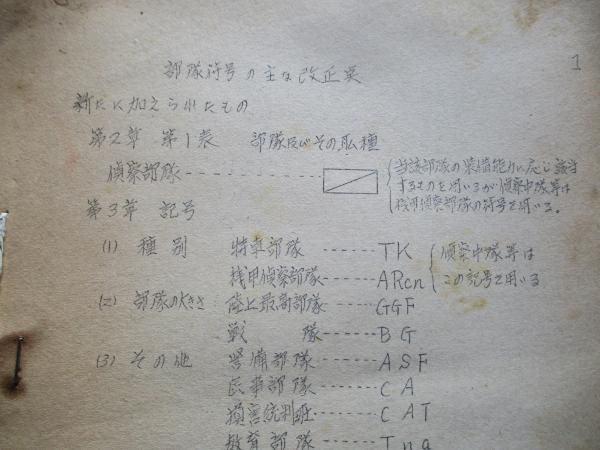 1
部隊符号の主な改正案
新たに加えられたもの
第2章 第1表 部隊及びその职種
偵察部隊 --------- 当該部隊の装備能力に応じ該当
するものを用いるが偵察中隊等は
機甲偵察部隊の符号を用いる。
第3章 記号
(1) 種別 特車部隊 ------ TK 偵察中隊等は
機甲偵察部隊 ------ ARcn この記号を用いる
(2) 部隊の大きさ 陸上最高部隊 ------ GGF
戦隊 ------ BG
(3) その他 警備部隊 ------ ASF
民事部隊 ------ CA
損害統制班 ------ CAT
教育部隊 ------ Tng